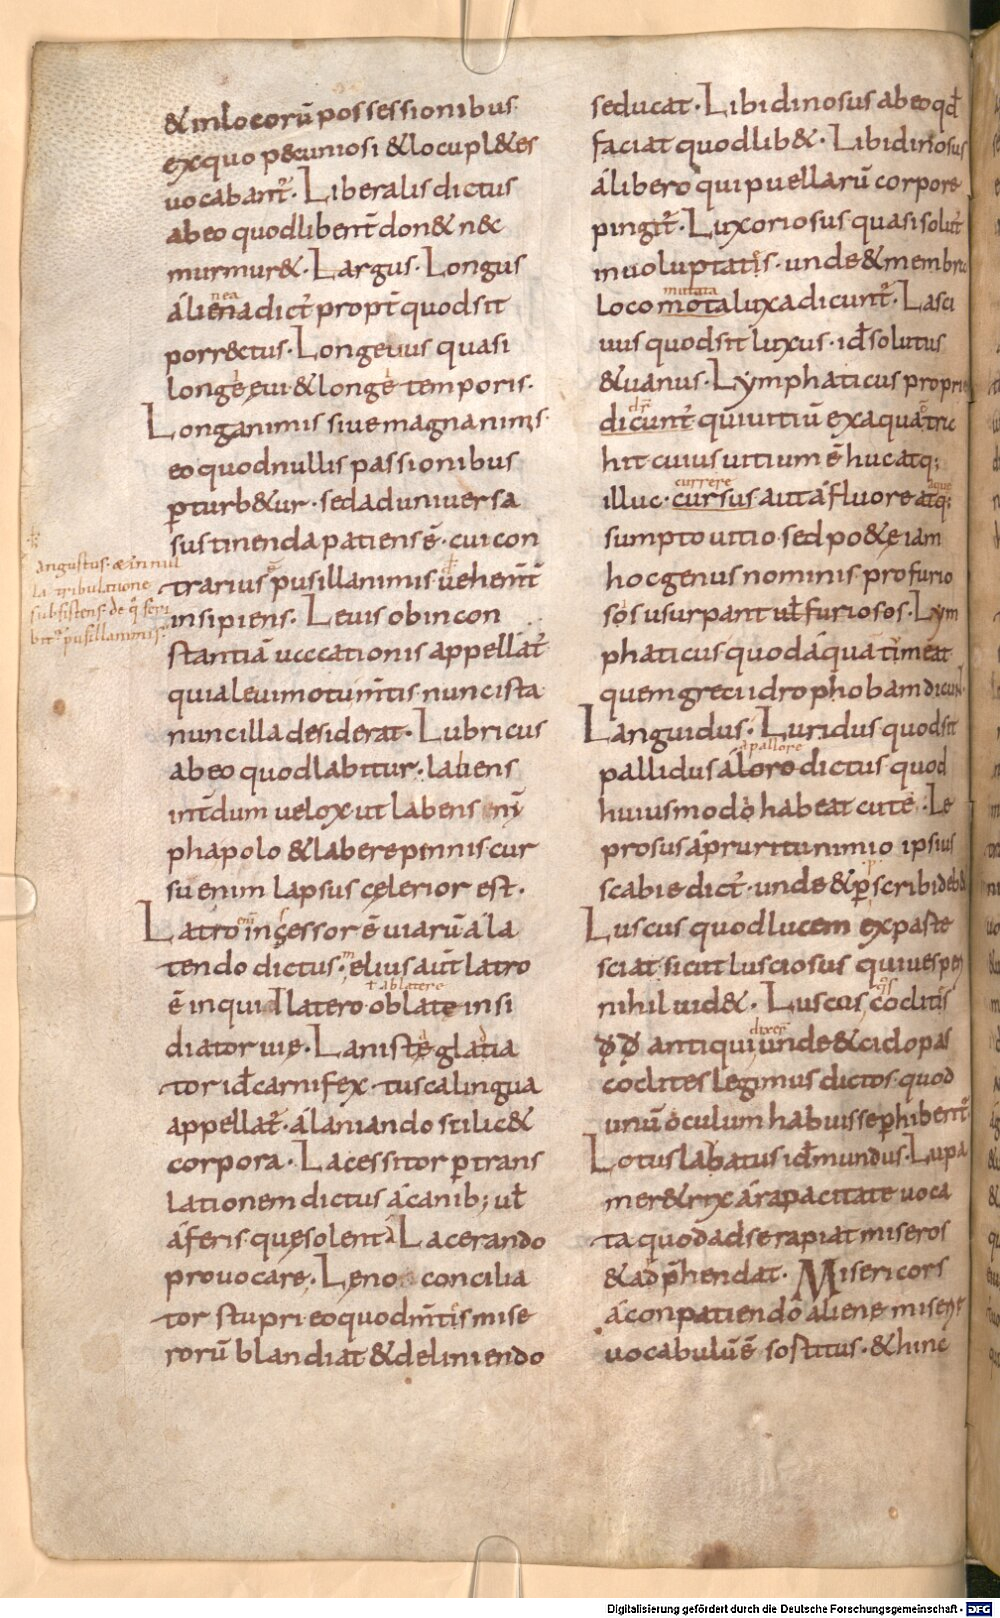 & inlocorū possessionibus
exquo p&cuniosi &locupl&es
uocabant᷑. Liberalis dictus
abeo quodlibent̄ don& n&c
murmur&. Largus. Longus
nea
álienadict᷑ propt̄ quodsit
porr&ctus. Longeuus quasi
longęęui. &longę temporis.
Longanimis siuemagnanimis.
eo quodnullis passionibus
ꝑturb&ur. sedaduniuersa
sustinendapatiensē. cuicon
angustus. & in nul
la tribulatione
subsistens. de q̊ scri
bit᷑ pusillanimis
trarius pusillanimis uehem̄t
insipiens. Leuis obincon
stantiā uacationis appellat᷑
quialeuimotum̄tis nuncista
nuncilla desiderat. Lubricus
abeo quodlabitur. labens
int̄dum uelox ut labens
phapolo &laberepinnis cur
suenim lapsus cęlerior est.
Latro incessor ē uiarū á la
tendo dictus. elius aut̄ latro
ł ablatere
ē inquid latero oblate insi
diator uię. Lanistę gladia
tor id̄ carnifex tuscalingua
appellat᷑. álaniando scilic&
corpora. Lacessitor ꝑ trans
lationem dictus ácanib; ul̄
áferis quęsolent Lacerando
prouocare. Leno concilia
tor stupri eoquodm̄tis mise
rorū blandiat &deliniendo
seducat. Libidinosus abeoqd̄
faciat quodlib&. Libidinosus
álibero qui puellarū corpore
pingit᷑. Luxoriosus quasi solut᷑
inuoluptatis. unde&membra
mutata
locomotaluxadicunt᷑. Lasci
uus quodsit luxus. id̄ solutus
&uanus. Lymphaticus proprie
dr̄
dicunt᷑ qui uitiū exaquatra
hit cuius uitium ē hucatq;
currere
illuc. cursus aut áfluore atq;
sumpto uitio sed po&ę iam
hocgenus nominis profurio
sos usurpant ul̄ furiosos. Lym
phaticus quodáquā timeat
quemgreci idrophobamdicun̄
Languidus. Luridus quodsit
apallore
pallidus áloro dictus quod
huiusmodo habeat cutē. Le
prosus ápruritunimio ipsius
scabie dict᷑. unde&ꝑscribideb&
Luscus quodlucem expaste
sciat sicut lusciosus quiuesperi
nihil uid&. Luscus coclitis
dixer̄
antiqui unde&ciclopas
coclites legimus dictos. quod
unū oculum habuisseꝑhibent᷑
Lotus labatus id̄ mundus. Lupa
mer&rix árapacitate uoca
ta quodadserapiat miseros
&adp̄hendat. Misericors
áconpatiendo aliene miserię
uocabulūē sostitus. &hinc
Digitalisierung gefördert durch die Deutsche Forschungsgemeinschaft - DFG